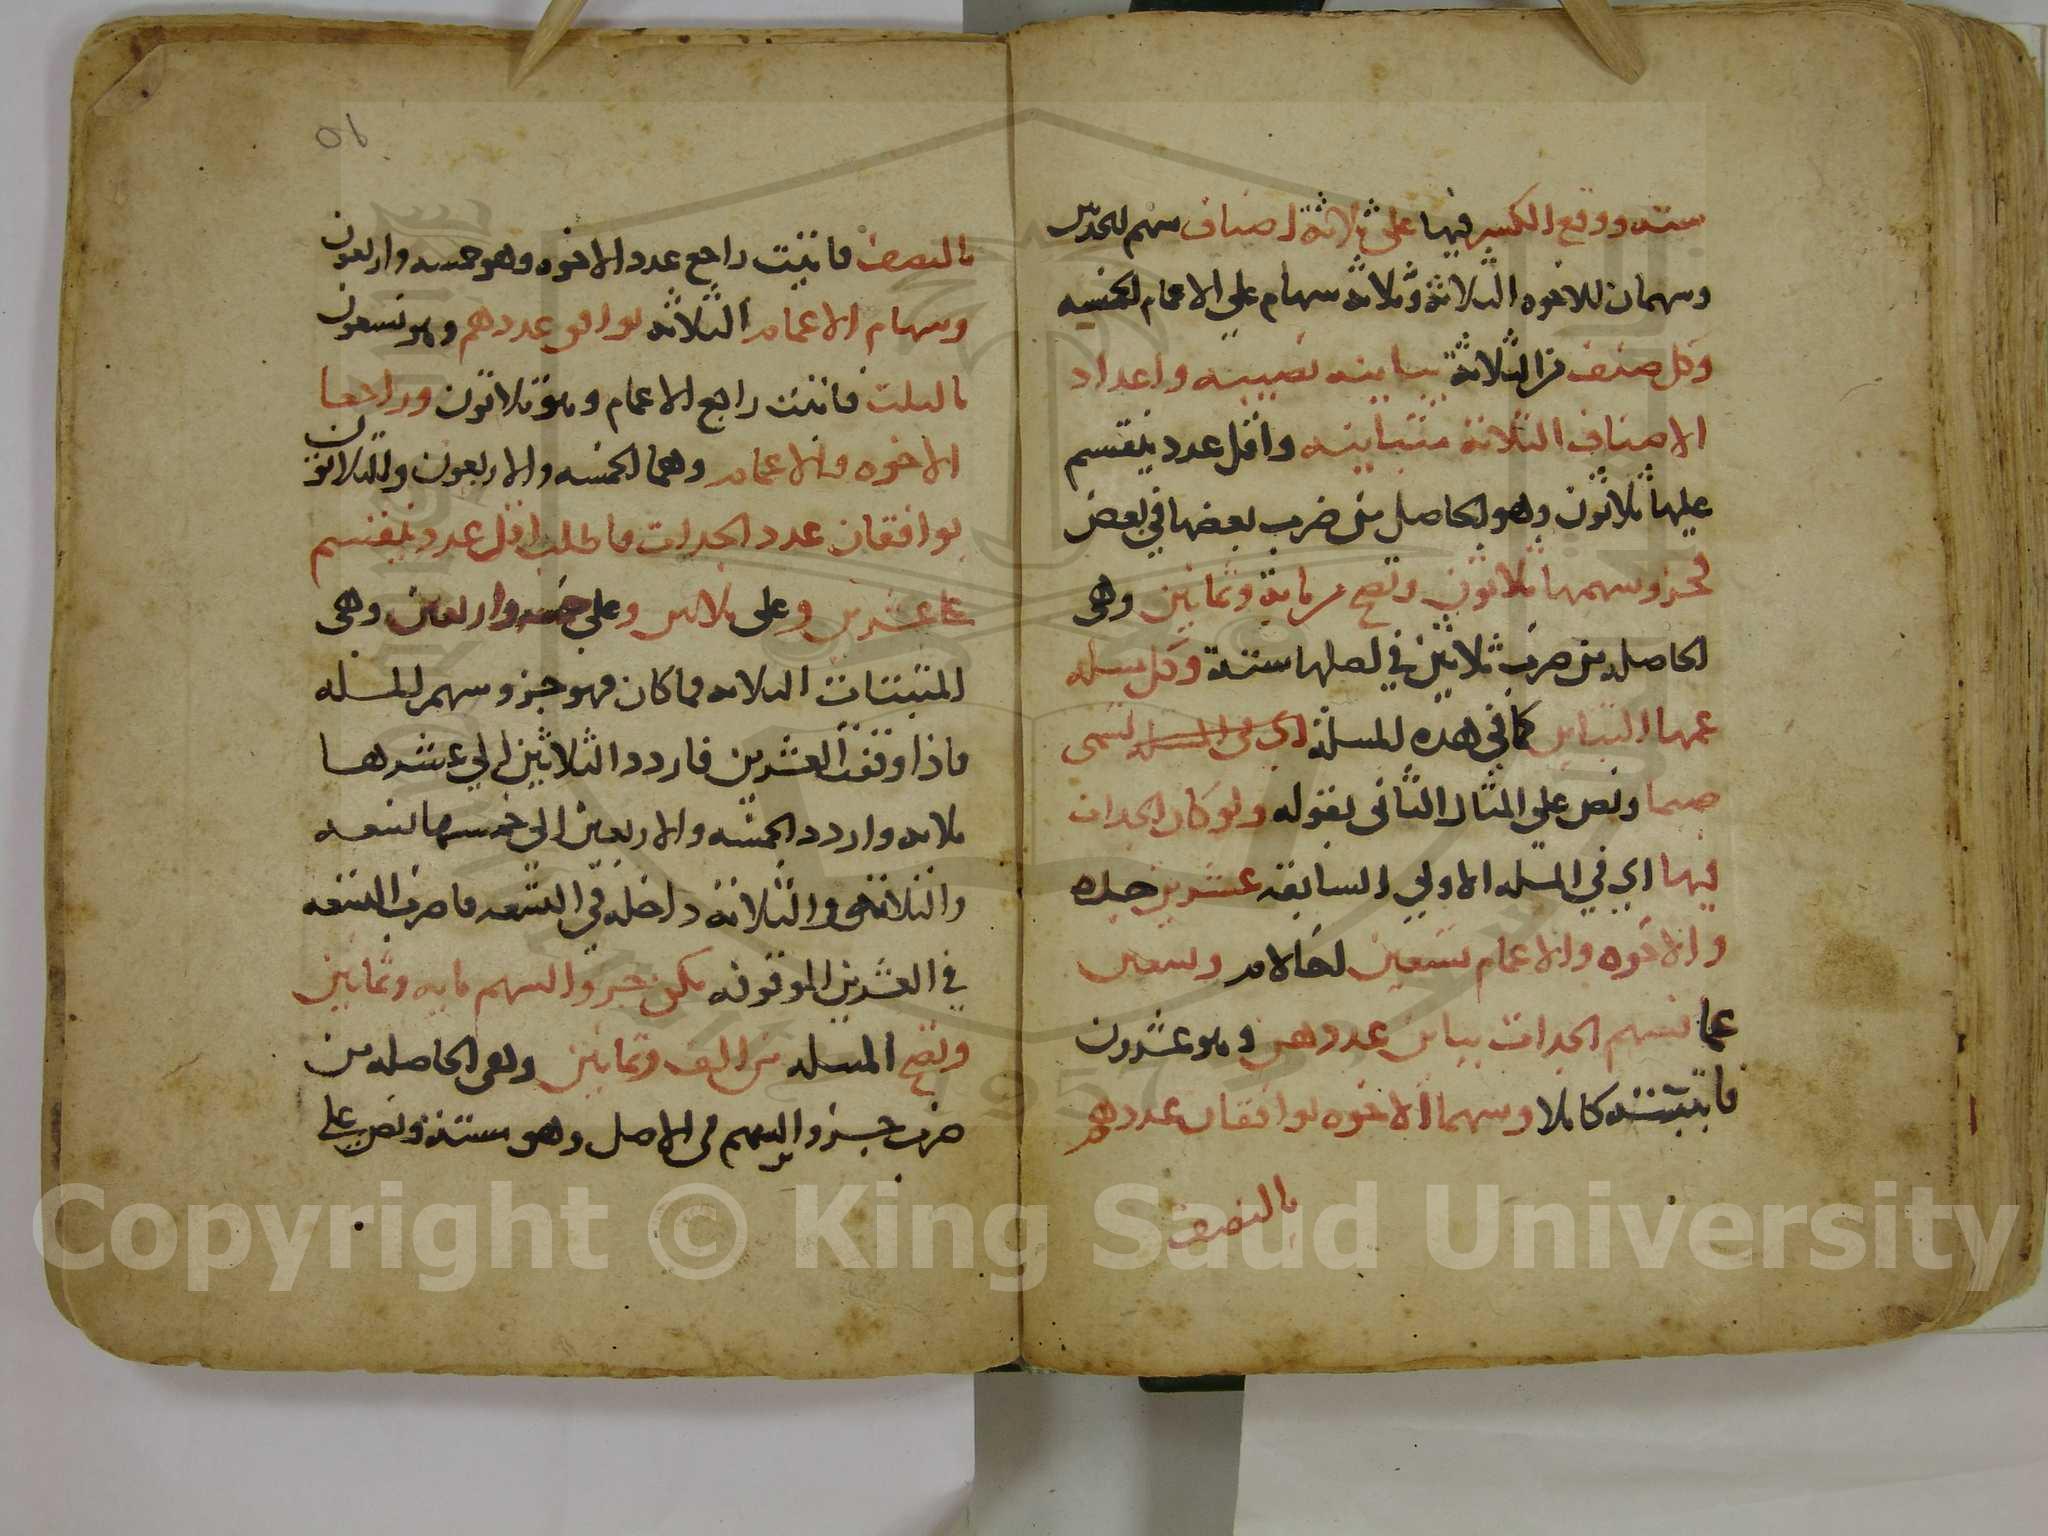 ستة ووقع الكسر فيها على ثلاثة اصناف سهم للجدتين
وسهمان للاخوه الثلاثة وثلاثة سهام على الاعمام الخمسه
وكل صنف من الثلاثة يباينه نصيبه واعداد
الاصناف الثلاثة متباينه واقل عدد ينقسم
عليها ثلاثون وهو الحاصل من ضرب بعضها في بعض
فجزو سهمها ثلاثون وتصح من ماية وثمانين وهى
الحاصله من ضرب ثلاثين في اصلها ستة وكل مسله
عمها التباين كما في هذه المسلة تسمى
صما ونص على المثال الثاني بقوله ولو كان الجدات
فيها اي في المسله الاولى السابقه عشرين جده
والاخوه والاعمام تسعين لحالامر وتسعين
عما فسهم الجدات يباين عددهن وهو عشرون
فاثبته كاملا وسهما الاخوه يوافقان عددهم
بالنصف
٥٦
بالنصف فاثبت راجع عدد الاخوه وهو خمسه واربعون
وسهام الاعمام الثلاثة توافق عددهم وهو تسعون
بالثلث فاثبت راجع الاعمام وهو ثلاثون وراجعا
الاخوه والاعمام وهما الخمسه والاربعون والثلاثون
يوافقان عدد الجدات فاطلب اقل عدد ينقسم
على عشرين وعلى ثلاثين وعلى خمسه واربعين وهى
المثبتات الثلاثه فما كان فهو جزو سهم المسله
فاذا وقفت العشرين فاردد الثلاثين الى عشرها
ثلاثه واردد الخمسه والاربعين الى خمسها تسعه
والثلاثة داخله في التسعه فاضرب التسعه
في العشرين الموقوفه يكن جزو السهم مايه وثمانين
وتصح المسله من الف وثمانين وهى الحاصله من
ضرب جزو السهم في الاصل وهو ستة ونص على
Copyright © King Saud University
1957